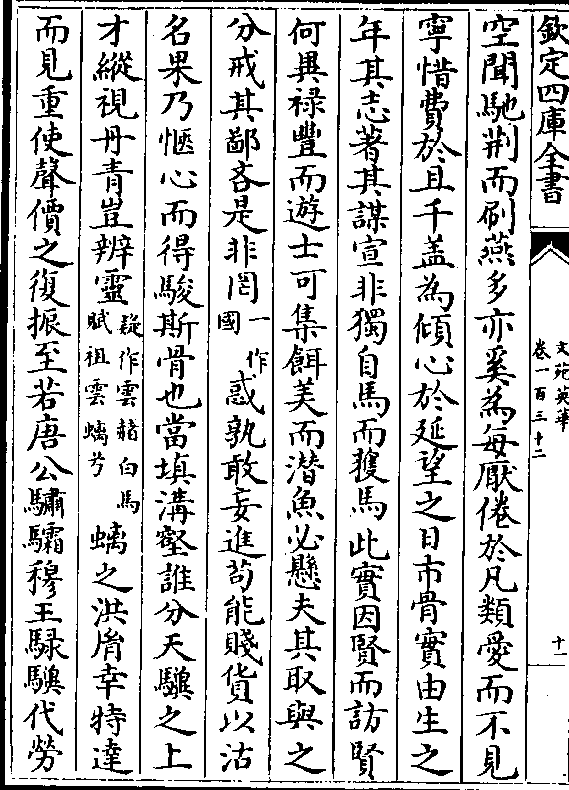 欽定四庫全書
文苑英華
卷一百三十二
十一
空聞馳荆而刷燕多亦奚為每厭倦於凡類愛而不見
寧惜費於且千盖為傾心於延望之日市骨實由生之
年其志著其謀宣非獨自馬而獲馬此實因賢而訪賢
何異祿豐而遊士可集餌美而潜魚必懸夫其取與之
分戒其鄙吝是非罔一作國惑孰敢妄進苟能賤貨以沽
名果乃愜心而得駿斯骨也當填溝壑誰分天驥之上
才縱視丹青豈辨靈疑作雲赭白馬賦祖雲螭兮螭之洪胤幸特達
而見重使聲價之復振至若唐公驌驦穆王騄驥代勞